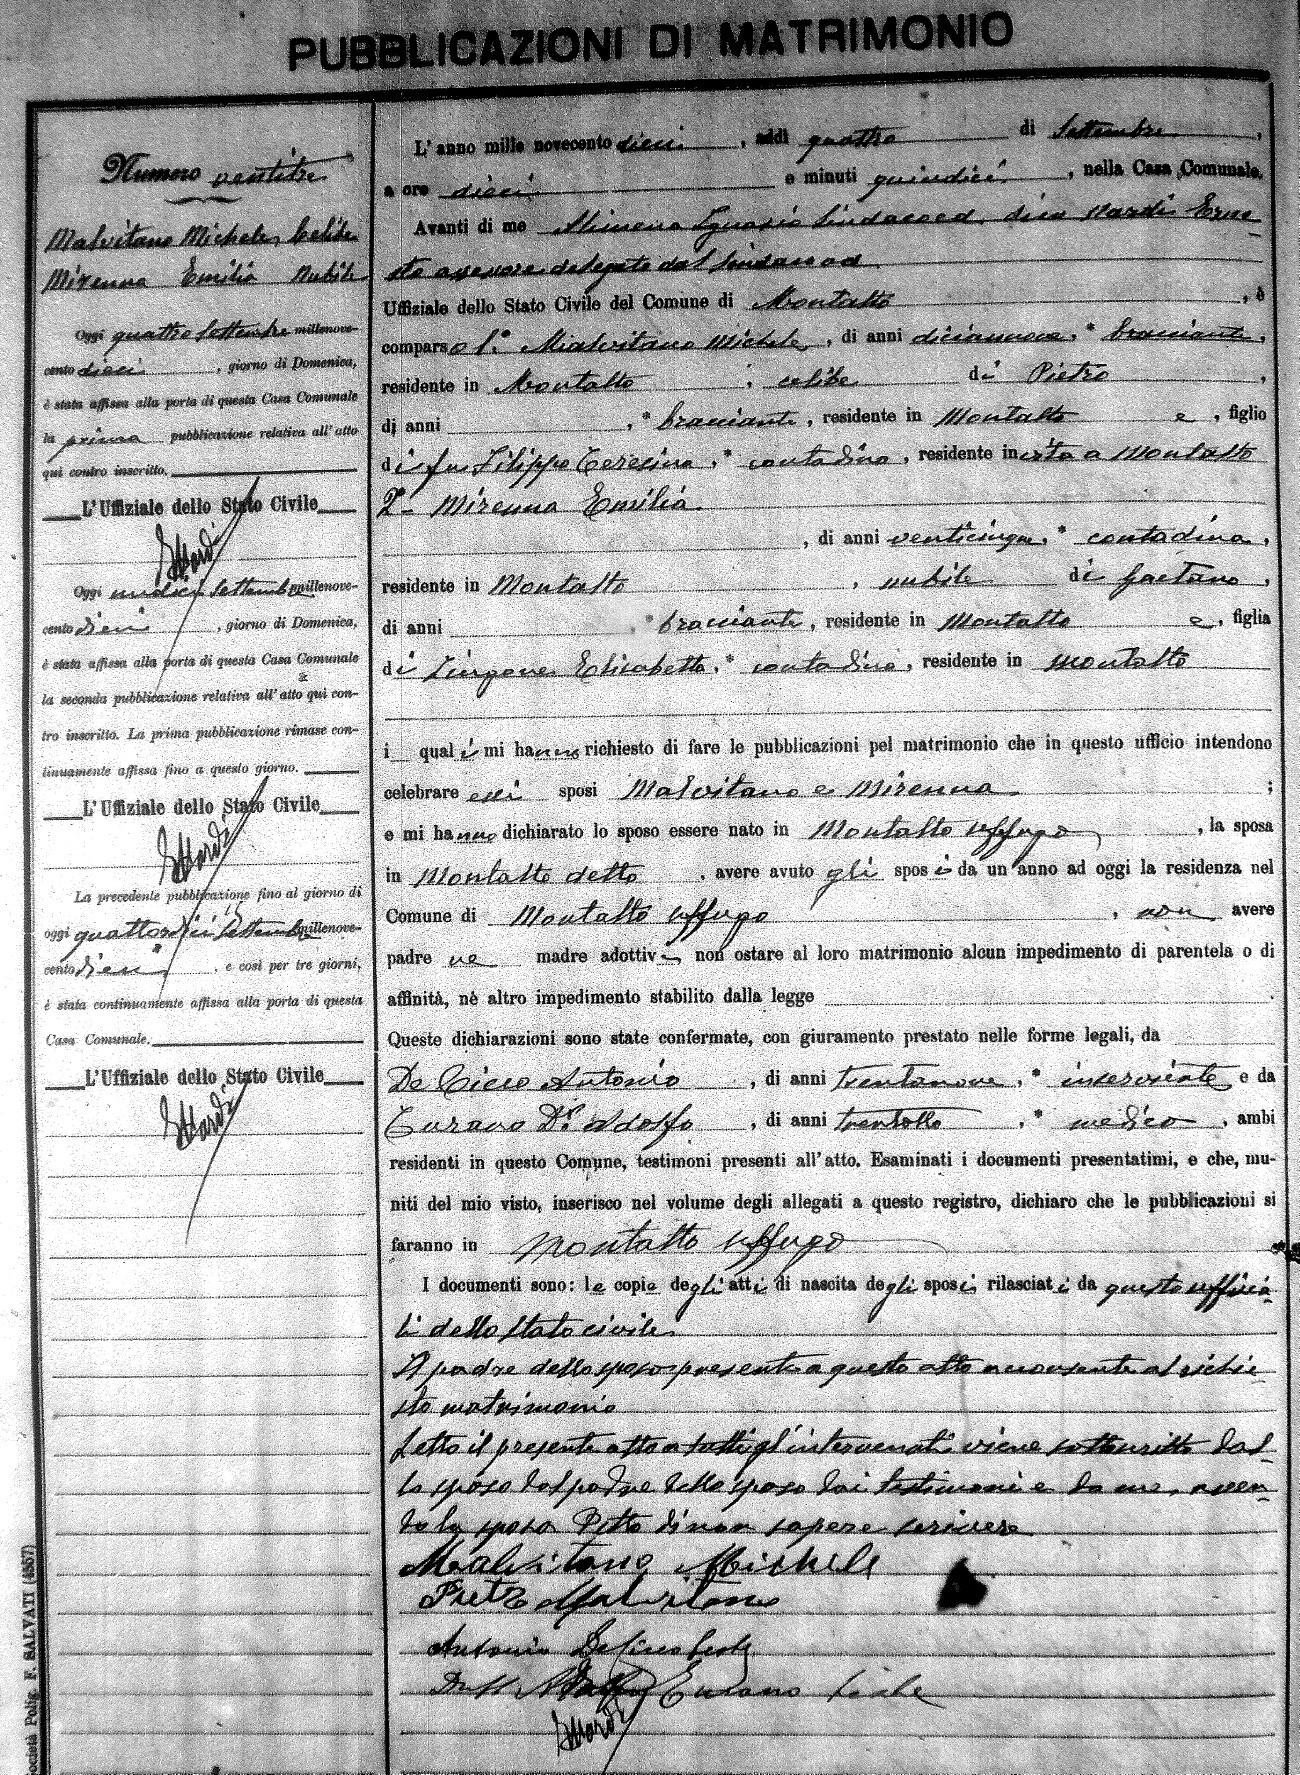 PUBBLICAZIONI DI MATRIMONIO
Numero ventitre
Malvitano Michele, Celibe
Mirenna Emilia nubile
Oggi quattro Settembre millenove-
cento dieci, giorno di Domenica,
è stata affissa alla porta di questa Casa Comunale
la prima pubblicazione relativa all'atto
qui contro inscritto.
L'Uffiziale dello Stato Civile
Nardi
Oggi undici Settembre millenove-
cento dieci, giorno di Domenica,
è stata affissa alla porta di questa Casa Comunale
la seconda pubblicazione relativa all'atto quì con-
tro inscritto. La prima pubblicazione rimase con-
tinuamente affissa fino a questo giorno.
L'Uffiziale dello Stato Civile
Nardi
La precedente pubblicazione fino al giorno di
oggi quattordici Settembre millenove-
cento dieci, e così per tre giorni,
è stata continuamente affissa alla porta di questa
Casa Comunale.
L'Uffiziale dello Stato Civile
Nardi
L'anno mille novecento dieci, addì quattro di Settembre,
a ore dieci e minuti quindici, nella Casa Comunale.
Avanti di me Nardi Erne
sto assessore delegato dal Sindaco
Uffiziale dello Stato Civile del Comune di Montalto, è
compars o 1.° Malvitano Michele, di anni diciannove, * bracciante,
residente in Montalto, celibe di Pietro,
di anni , * bracciante, residente in Montalto e, figlio
di fu Filippo Teresina, * contadina, residente in vita a Montalto
2° Mirenna Emilia
, di anni venticinque, * contadina,
residente in Montalto, nubile di Gaetano,
di anni , * bracciante, residente in Montalto e, figlia
di Zingone Elisabetta, * contadina, residente in Montalto
i quali mi hanno richiesto di fare le pubblicazioni pel matrimonio che in questo ufficio intendono
celebrare essi sposi Malvitano e Mirenna ;
e mi hanno dichiarato lo sposo essere nato in Montalto Uffugo, la sposa
in Montalto detto, avere avuto gli sposi da un anno ad oggi la residenza nel
Comune di Montalto Uffugo, non avere
padre ne madre adottivi non ostare al loro matrimonio alcun impedimento di parentela o di
affinità, nè altro impedimento stabilito dalla legge
Queste dichiarazioni sono state confermate, con giuramento prestato nelle forme legali, da
De Cicco Antonio, di anni trentanove, * inserviente e da
Turano Dr. Adolfo, di anni trentotto, * medico, ambi
residenti in questo Comune, testimoni presenti all'atto. Esaminati i documenti presentatimi, e che, mu-
niti del mio visto, inserisco nel volume degli allegati a questo registro, dichiaro che le pubblicazioni si
faranno in Montalto Uffugo
I documenti sono: le copie degli atti di nascita degli sposi rilasciati da questo Uffizia
li dello stato civile
Il padre dello sposo presente a questo atto acconsente al richie
sto matrimonio
Letto il presente atto a tutti gl'intervenuti viene sottoscritto dal
lo sposo dal padre dello sposo dai testimoni e da me, aven
do la sposa detto di non sapere scrivere
Malvitano Michele
Pietro Malvitano
Antonio De Cicco teste
Turano teste
Nardi
Società Polig. F. SALVATI (4557)